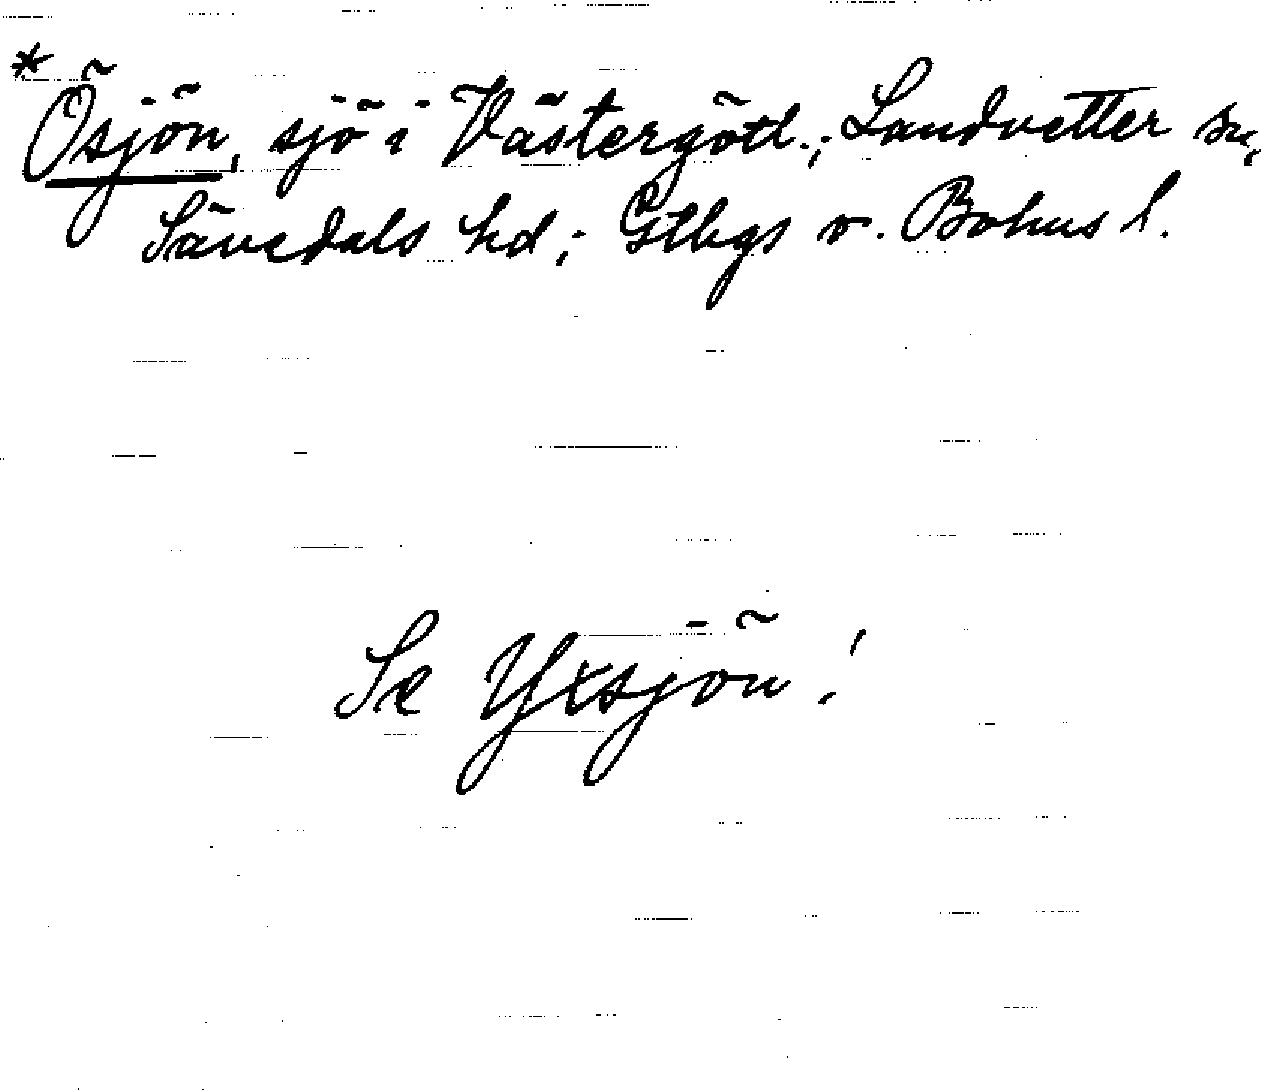 *Ösjön, sjö i Västergötl.; Landvetter sn,
Sävedals hd; Gtbgs o. Bohus l.
Se Yxsjön!